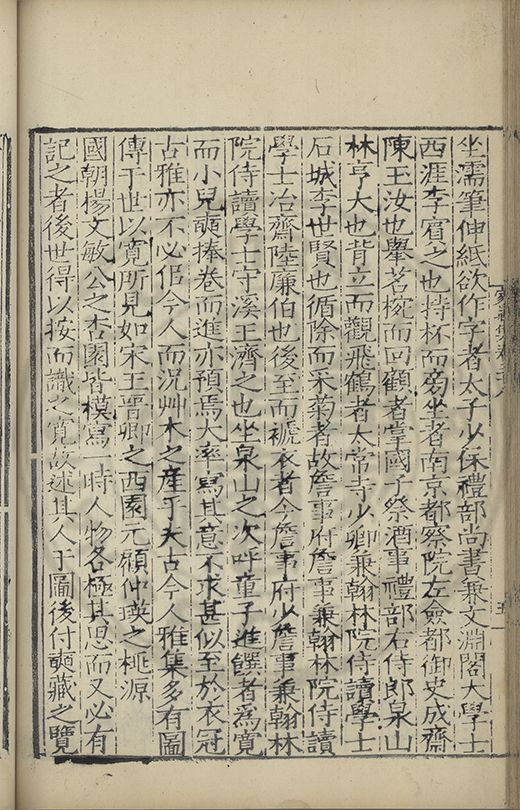 坐濡筆伸紙欲作字者太子少保禮部尚書兼文淵閣大學士
西涯李賓之也持杯而旁坐者南京都察院左僉都御史成齋
陳玉汝也舉茗椀而回顧者掌國子祭酒事禮部右侍郎泉山
林亨大也背立而觀飛鶴者太常寺少卿兼翰林院侍讀學士
石城李世賢也循除而采菊者故詹事府詹事兼翰林院侍讀
學士冶齋陸廉伯也後至而褫衣者今詹事府少詹事兼翰林
院侍讀學士守溪王濟之也坐泉山之次呼童子進饌者為寬
而小兒奭捧卷而進亦預焉大率寫其意不求甚似至於衣冠
古雅亦不必俱今人而況艸木之產乎夫古今人雅集多有圖
傳于世以寬所見如宋王晉卿之西園元顧仲瑛之桃源
國朝楊文敏公之杏園皆模寫一時人物各極其思而又必有
記之者後世得以按而識之寬故述其人于圖後付奭藏之覽